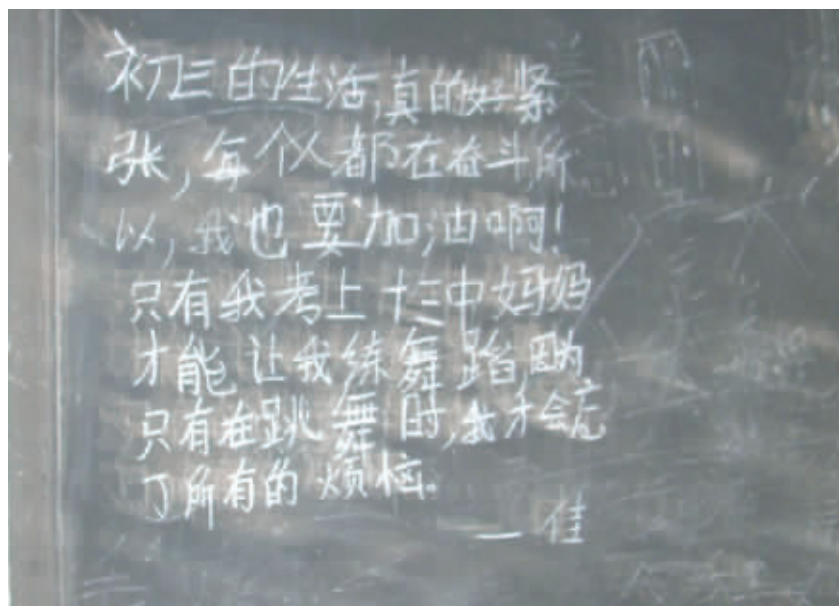 初三的生活,真的好紧
张,每个人都在奋斗,所
以,我也要加油啊!
只有我考上十三中妈妈
才能让我练舞蹈,因为
只有在跳舞时,我才会忘
了所有的烦恼。
——佳